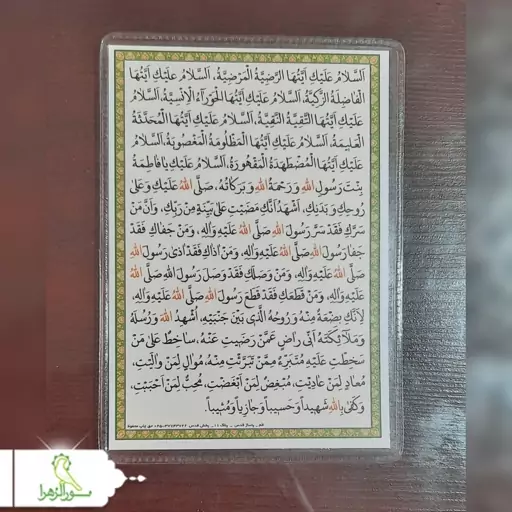 اَلسَّلامُ عَلَيْكِ اَيَّتُهَا الرَّضِيَّةُ الْمَرْضِيَّةُ، اَلسَّلامُ عَلَيْكِ اَيَّتُهَا
الْفاضِلَةُ الزَّكِيَّةُ، اَلسَّلامُ عَلَيْكِ اَيَّتُهَا الْحَوْرآءُ الْاِنْسِيَّةُ، اَلسَّلامُ
عَلَيْكِ اَيَّتُهَا التَّقِيَّةُ النَّقِيَّةُ، اَلسَّلامُ عَلَيْكِ اَيَّتُهَا الْمُحَدَّثَةُ
الْعَليمَةُ، اَلسَّلامُ عَلَيْكِ اَيَّتُهَا الْمَظْلُومَةُ الْمَغْصُوبَةُ، اَلسَّلامُ
عَلَيْكِ اَيَّتُهَا الْمُضْطَهَدَةُ الْمَقْهُورَةُ، اَلسَّلامُ عَلَيْكِ يا فاطِمَةُ
بِنْتَ رَسُولِ اللهِ وَرَحْمَةُ اللهِ وَبَرَكاتُهُ، صَلَّى اللهُ عَلَيْكِ وَعَلى
رُوحِكِ وَبَدَنِكِ، اَشْهَدُ اَنَّكِ مَضَيْتِ عَلى بَيِّنَةٍ مِنْ رَبِّكِ، وَاَنَّ مَنْ
سَرَّكِ فَقَدْ سَرَّ رَسُولَ اللهِ صَلَّى اللهُ عَلَيْهِ وَالِهِ، وَمَنْ جَفاكِ فَقَدْ
جَفا رَسُولَ اللهِ صَلَّى اللهُ عَلَيْهِ وَالِهِ، وَمَنْ اذاكِ فَقَدْ اذى رَسُولَ اللهِ
صَلَّى اللهُ عَلَيْهِ وَالِهِ، وَمَنْ وَصَلَكِ فَقَدْ وَصَلَ رَسُولَ اللهِ صَلَّى اللهُ
عَلَيْهِ وَالِهِ، وَمَنْ قَطَعَكِ فَقَدْ قَطَعَ رَسُولَ اللهِ صَلَّى اللهُ عَلَيْهِ وَالِهِ،
لِاَنَّكِ بِضْعَةٌ مِنْهُ وَرُوحُهُ الَّذي بَيْنَ جَنْبَيْهِ، اُشْهِدُ اللهَ وَرُسُلَهُ
وَمَلآئِكَتَهُ اَنّى راضٍ عَمَّنْ رَضيتِ عَنْهُ، ساخِطٌ عَلى مَنْ
سَخِطْتِ عَلَيْهِ مُتَبَرِّءٌ مِمَّنْ تَبَرَّئْتِ مِنْهُ، مُوالٍ لِمَنْ والَيْتِ،
مُعادٍ لِمَنْ عادَيْتِ، مُبْغِضٌ لِمَنْ اَبْغَضْتِ، مُحِبٌّ لِمَنْ اَحْبَبْتِ،
وَكَفى بِاللهِ شَهيداً وَحَسيباً وَجازِياً وَمُثيباً.
سورالزهرا